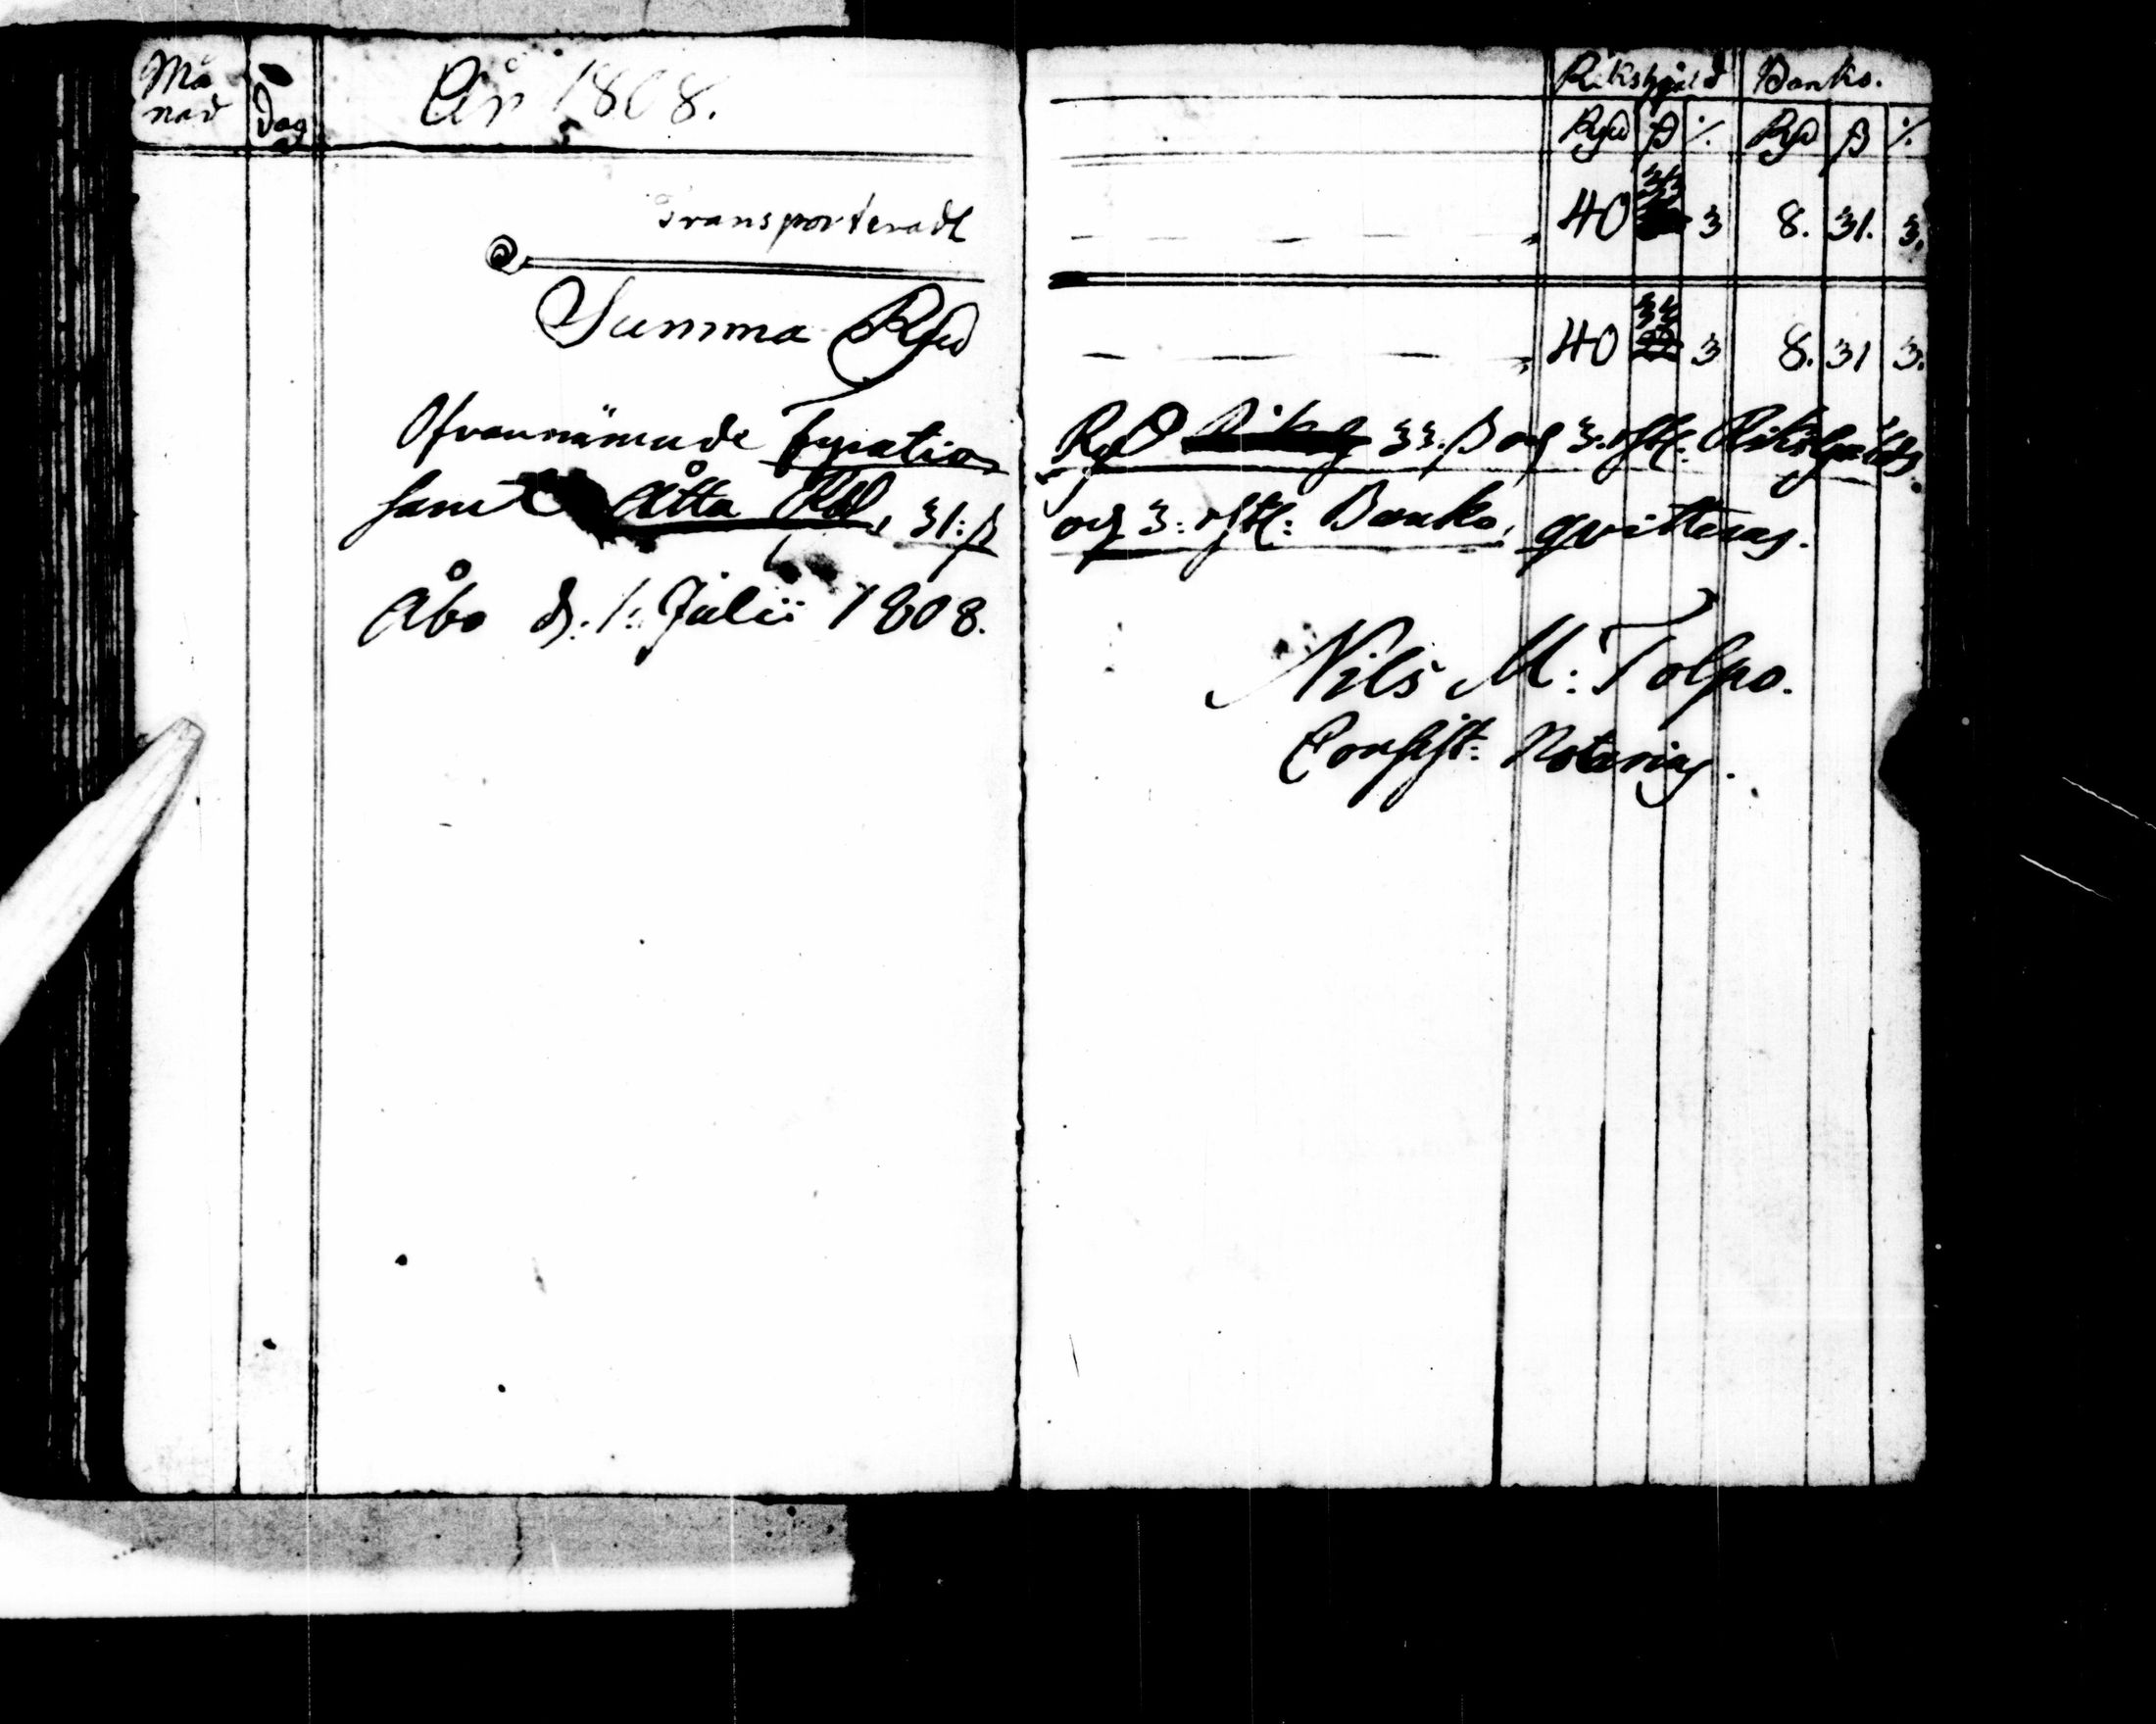 Må
nad
Dag
År 1808.
Riksgäld Banko.
Rgd ß ∙/. Rgd ß ∙/.
Transporteradt — — — 40 33 3 8. 31. 3.
Summa Rgd — — — 40 33 3 8. 31 3.
Ofvannämnde fyratio Rgd 33. ß och 3. rst: Riksgälds
samt Åtta Rd, 31: ß och 3: rst: Banko, qvitteras.
Åbo d. 1. Julii 1808.
Nils M: Tolpo.
Consist: Notarius.